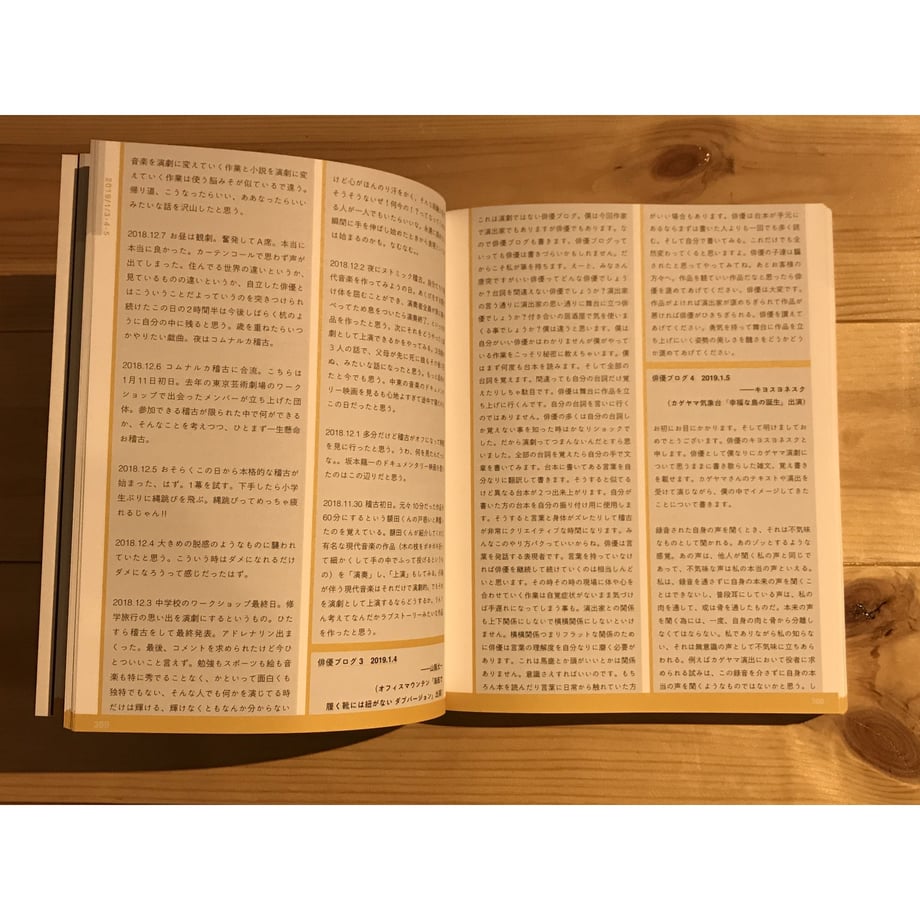 2019/1/3,4,5
音楽を演劇に変えていく作業と小説を演劇に変
えていく作業は使う脳みそが似ているで違う。
帰り道、こうなったらいい、ああなったらいい
みたいな話を沢山したと思う。
2018.12.7 お昼は観劇。奮発してA席。本当に
本当に良かった。カーテンコールで思わず声が
出てしまった。住んでる世界の違いというか、
見ているものの違いというか、自立した俳優と
はこういうことだよっていうのを突きつけられ
続けたこの日の2時間半は今後しばらく杭のよ
うに自分の中に残ると思う。歳を重ねたらいつ
かやりたい戯曲。夜はコムナルカ稽古。
2018.12.6 コムナルカ稽古に合流。こちらは
1月11日初日。去年の東京芸術劇場のワーク
ショップで出会ったメンバーが立ち上げた団
体。参加できる稽古が限られた中で何ができる
か、そんなことを考えつつ、ひとまず一生懸命
お稽古。
2018.12.5 おそらくこの日から本格的な稽古が
始まった、はず。1幕を試す。下手したら小学
生ぶりに縄跳びを飛ぶ。縄跳びってめっちゃ疲
れるじゃん!!
2018.12.4 大きめの脱感のようなものに襲われ
ていたと思う。こういう時はダメになれるだけ
ダメになろうって感じだったはず。
2018.12.3 中学校のワークショップ最終日。修
学旅行の思い出を演劇にするというもの。ひた
すら稽古をして最終発表。アドレナリン出まく
った。最後、コメントを求められたけど今ひ
とついいこと言えず。勉強もスポーツも絵も音
楽も特に秀でることなく、かといって面白くも
独特でもない、そんな人でも何かを演じてる時
だけは輝ける、輝けなくともなんか分からない
けど心がほんのり汗をかく、
そうそうないぜ！何今の！？って
る人が一人でもいたらいいな。
瞬間に手を伸ばし始めたときから
は始まるのかも。なむなむ…。
2018.12.2 夜にストミック稽古。
代音楽を作ってみようの日。
け体を読むことができ、演奏者全員が
べってため息をついたら演奏終了、という
品を作ったと思う。次にそれを
劇として上演できるかをやってみる。
３人の話で、父母が先に死に娘もその
ぬ、みたいな話になったと思う。もっと
たと今でも思う。中東の音楽のドキュメンタ
リー映画を見るも心地よすぎて途中で
この日だったと思う。
2018.12.1 多分だけど稽古がオフになって映画
を見に行ったと思う。うわ、何を見たんだっけ
なぁ。坂本龍一のドキュメンタリー映画を
たのはこの辺りだと思う。
2018.11.30 稽古初日。元々10分だった作品を
60分にするという額田くんの戸惑いと興奮
たのを覚えている。額田くんが紹介してくれた
有名な現代音楽の作品（木の枝をボキボキ折っ
て細かくして手の中でふって投げるという
の）を「演奏」し、「上演」もしてみる。
が伴う現代音楽はそれだけで演劇的。でも
を演劇として上演するならどうするか。うんう
ん考えてなんだかラブストーリーみたいな作品
を作ったと思う。
俳優ブログ 3　2019.1.4
（オフィスマウンテン「海底で
履く靴には紐がない ダブバージョン」出演）
300
これは演劇ではない俳優ブログ。僕は今回作家
で演出家でもありますが俳優でもあります。な
ので俳優ブログも書きます。俳優ブログって
いっても俳優は書きづらいかもしれません。だ
からこそ私が筆を持ちます。えーと、みなさん
唐突ですがいい俳優ってどんな俳優でしょう
か？台詞を間違えない俳優でしょうか？演出家
の言う通りに演出家の思い通りに舞台に立つ俳
優でしょうか？付き合いの居酒屋で気を使いま
くる事でしょうか？僕は違うと思います。僕は
自分がいい俳優かはわかりませんが僕がやって
いる作業をこっそり秘密に教えちゃいます。僕
はまず何度も台本を読みます。そして全部の
台詞を覚えます。間違っても自分の台詞だけ覚
えたりしちゃ駄目です。俳優は舞台に作品を立
ち上げに行くんです。自分の台詞を言いに行く
のではありません。俳優の多くは自分の台詞し
か覚えない事を知った時はかなりショックで
した。だから演劇ってつまんないんだとすら思
いました。全部の台詞を覚えたら自分の手で文
章を書いてみます。台本に書いてある言葉を自
分なりに翻訳して書きます。そうすると似てる
けど異なる台本が２つ出来上がります。自分が
書いた方の台本を自分の振り付け用に使用しま
す。そうすると言葉と身体がズレたりして稽古
が非常にクリエイティブな時間になります。み
んなこのやり方パクっていいからね。俳優は言
葉を発話する表現者です。言葉を持っていなけ
れば俳優を継続して続けていくのは相当しんど
いと思います。その時その時の現場に体や心を
合わせていく作業は自覚症状がないまま気づけ
ば手遅れになってしまう事も。演出家との関係
も上下関係にしないで横横関係にしないといけ
ません。横横関係つまりフラットな関係のため
に俳優は言葉の理解度を自分なりに磨く必要が
あります。これは馬鹿とか頭がいいとかは関係
ありません。意識さえすればいいのです。もち
ろん本を読んだり言葉に日常から触れていた方
がいい場合もあります。俳優は台本が手元に
あるならまずは書いた人よりも一回でも多く読
む。そして自分で書いてみる。これだけでも全
然変わってくると思いますよ。俳優の子達は騙
されたと思ってやってみてね。あとお客様の
方々へ。作品を観ていい作品だなと思ったら俳
優を褒めてあげてください。俳優は大変です。
作品がよければ演出家が褒めちぎられて作品が
悪ければ俳優がひきちぎられる。俳優を讃えて
あげてください。勇気を持って舞台に作品を立
ち上げにいく姿勢の美しさを醜さをどうかどう
か褒めてあげてください。
俳優ブログ 4　2019.1.5
――キヨスヨネスク
（カゲヤマ気象台「幸福な島の誕生」出演）
お初にお目にかかります。そして明けましてお
めでとうございます。俳優のキヨスヨネスクと
申します。俳優として僕なりにカゲヤマ演劇に
ついて思うままに書き散らした雑文、覚え書き
を載せます。カゲヤマさんのテキストや演出を
受けて演じながら、僕の中でイメージしてきた
ことについて書きます。
録音された自身の声を聞くとき、それは不気味
なものとして聞かれる。あのゾッとするような
感覚。あの声は、他人が聞く私の声と同じで
あって、不気味な声は私の本当の声といえる。
私は、録音を通さずに自身の本来の声を聞くこ
とはできないし、普段耳にしている声は、私の
肉を通して、或は骨を通したものだ。本来の声
を聞く為には、一度、自身の肉と骨から分離し
なくてはならない。私でありながら私の知らな
い、それは無意識の声として不気味に立ちあら
われる。例えばカゲヤマ演出において役者に求
められる試みは、この録音を介さずに自身の本
当の声を聞くようなものではないかと思う。し
300